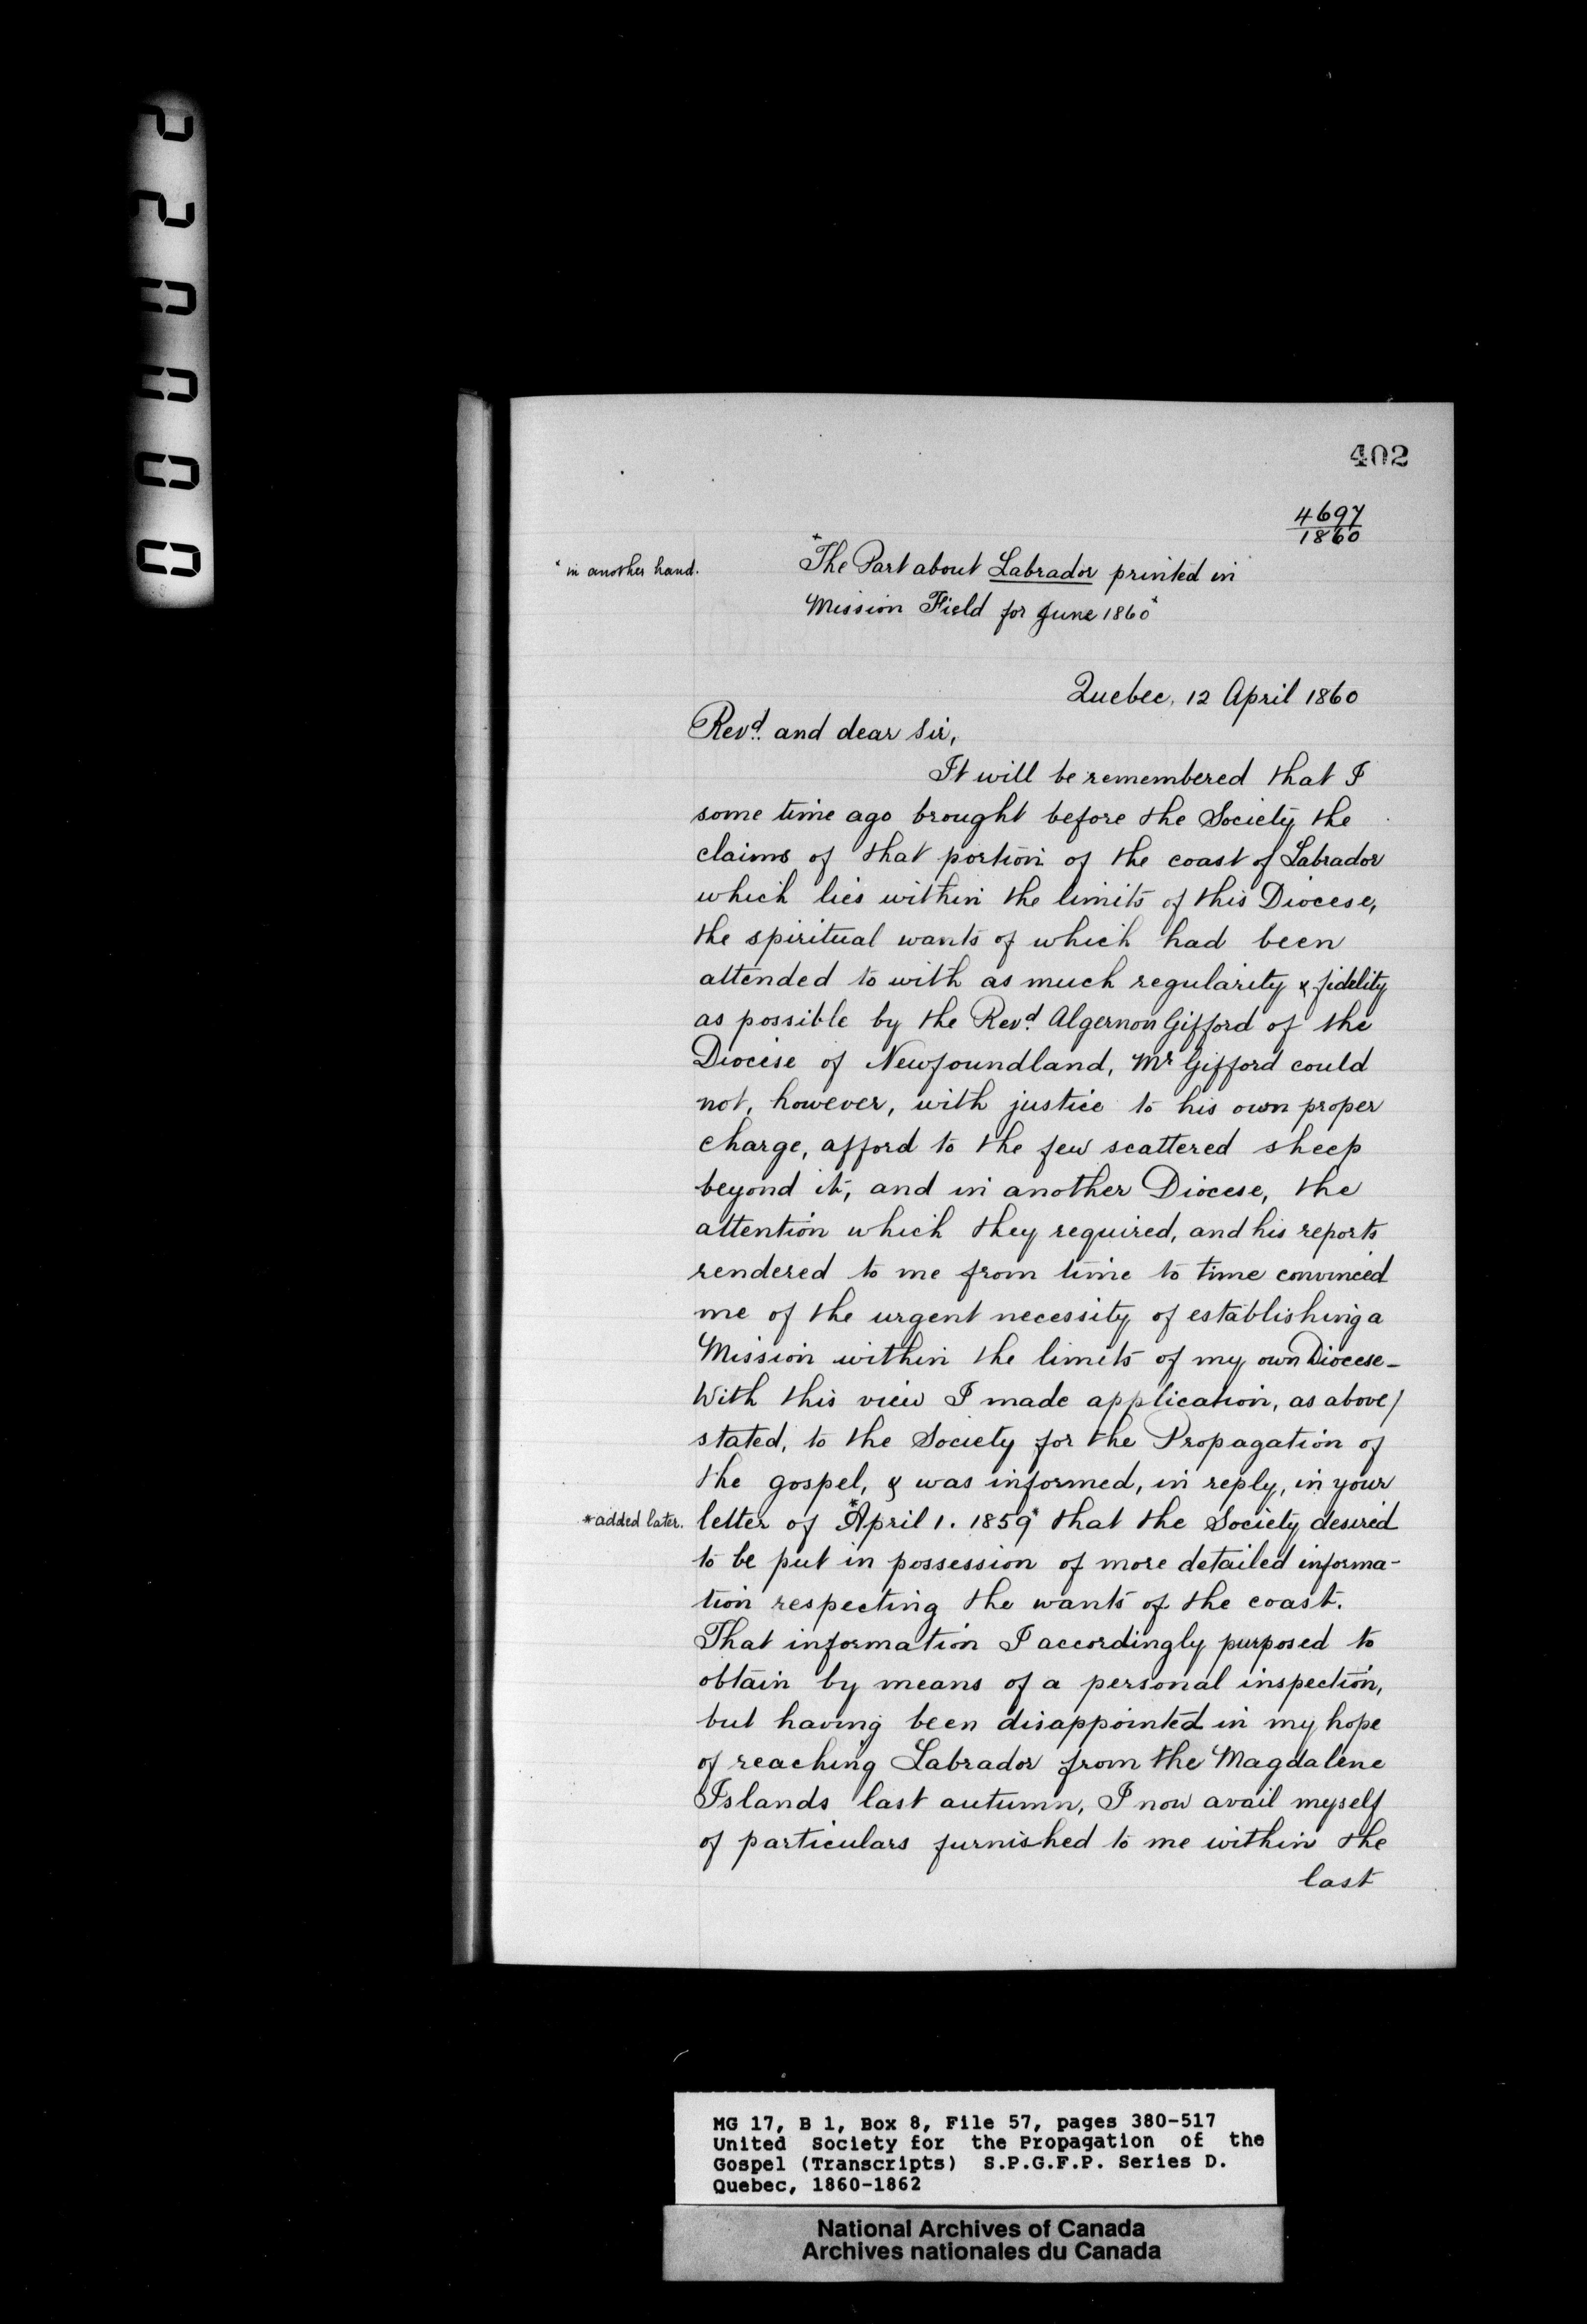 220000
402
4697
1860
* in another hand.
*The Part about Labrador printed in
Mission Field for June 1860*
Quebec, 12 April 1860
Revd. and dear Sir,
It will be remembered that I
some time ago brought before the Society the
claims of that portion of the coast of Labrador
which lies within the limits of this Diocese,
the spiritual wants of which had been
attended to with as much regularity & fidelity
as possible by the Revd. Algernon Gifford of the
Diocese of Newfoundland, Mr Gifford could
not, however, with justice to his own proper
charge, afford to the few scattered sheep
beyond it, and in another Diocese, the
attention which they required, and his reports
rendered to me from time to time convinced
me of the urgent necessity of establishing a
Mission within the limits of my own Diocese-
With this view I made application, as above/
stated, to the Society for the Propagation of
the gospel, & was informed, in reply, in your
*added later.
letter of *April 1. 1859* that the Society desired
to be put in possession of more detailed informa-
tion respecting the wants of the coast.
That information I accordingly purposed to
obtain by means of a personal inspection,
but having been disappointed in my hope
of reaching Labrador from the Magdalene
Islands last autumn, I now avail myself
of particulars furnished to me within the
last
MG 17, B 1, Box 8, File 57, pages 380-517
United Society for the Propagation of the
Gospel (Transcripts) S.P.G.F.P. Series D.
Quebec, 1860-1862
National Archives of Canada
Archives nationales du Canada